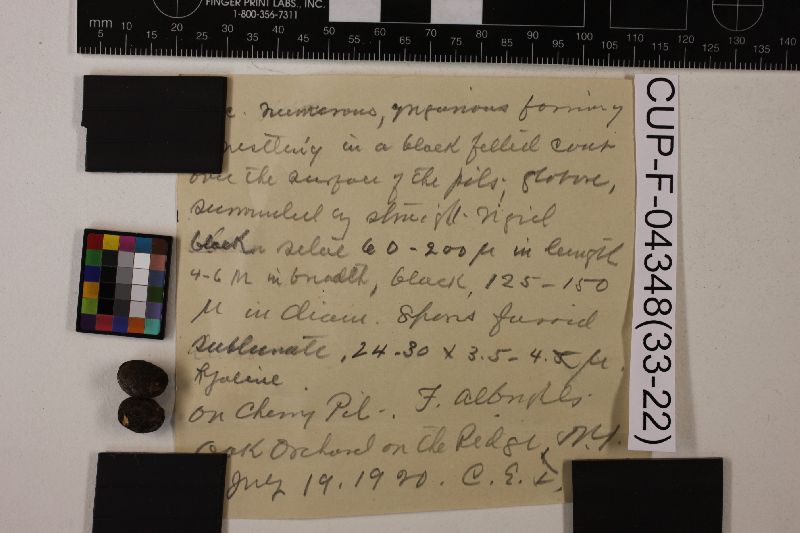 FINGER PRINT LABS., INC.
1-800-356-7311
mm 5 10 15 20 25 30 35 40 45 50 55 60 65 70 75 80 85 90 95 100 105 110 115 120 125 130 135 140
numerous, forming
nestling in a black felted coat
over the surface of the pits, globose,
surrounded by straight rigid
black setae 60-200 µ in length
4-6 µ in breadth, black, 125-150
µ in diam. Spores fusoid
sublunate, 24-30 x 3.5-4.5 µ.
hyaline.
on Cherry Pit-. F.
Oak Orchard on the Ridge, N.Y.
July 19. 1920. C. E.
CUP-F-04348(33-22)